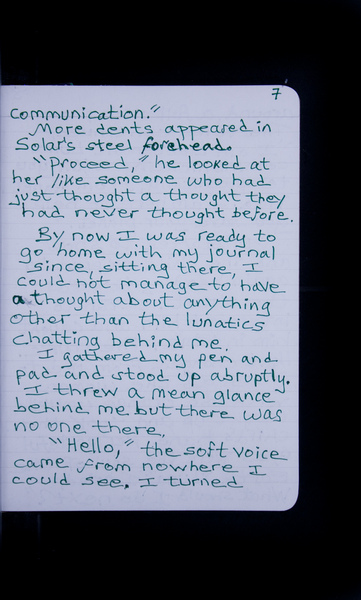 7
communication."
More dents appeared in
Solar's steel forehead.
"Proceed," he looked at
her like someone who had
just thought a thought they
had never thought before.
By now I was ready to
go home with my journal
since, sitting there, I
could not manage to have
a thought about anything
other than the lunatics
chatting behind me.
I gathered my pen and
pad and stood up abruptly.
I threw a mean glance
behind me but there was
no one there.
"Hello," the soft voice
came from nowhere I
could see. I turned